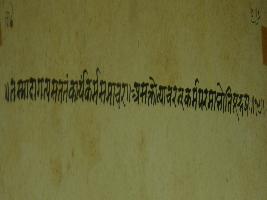 ॥तस्मादागत्यसततंकार्यंकर्मसमाचर॥असक्तोह्याचरन्कर्मपरमाप्नोतिपूरुषः॥